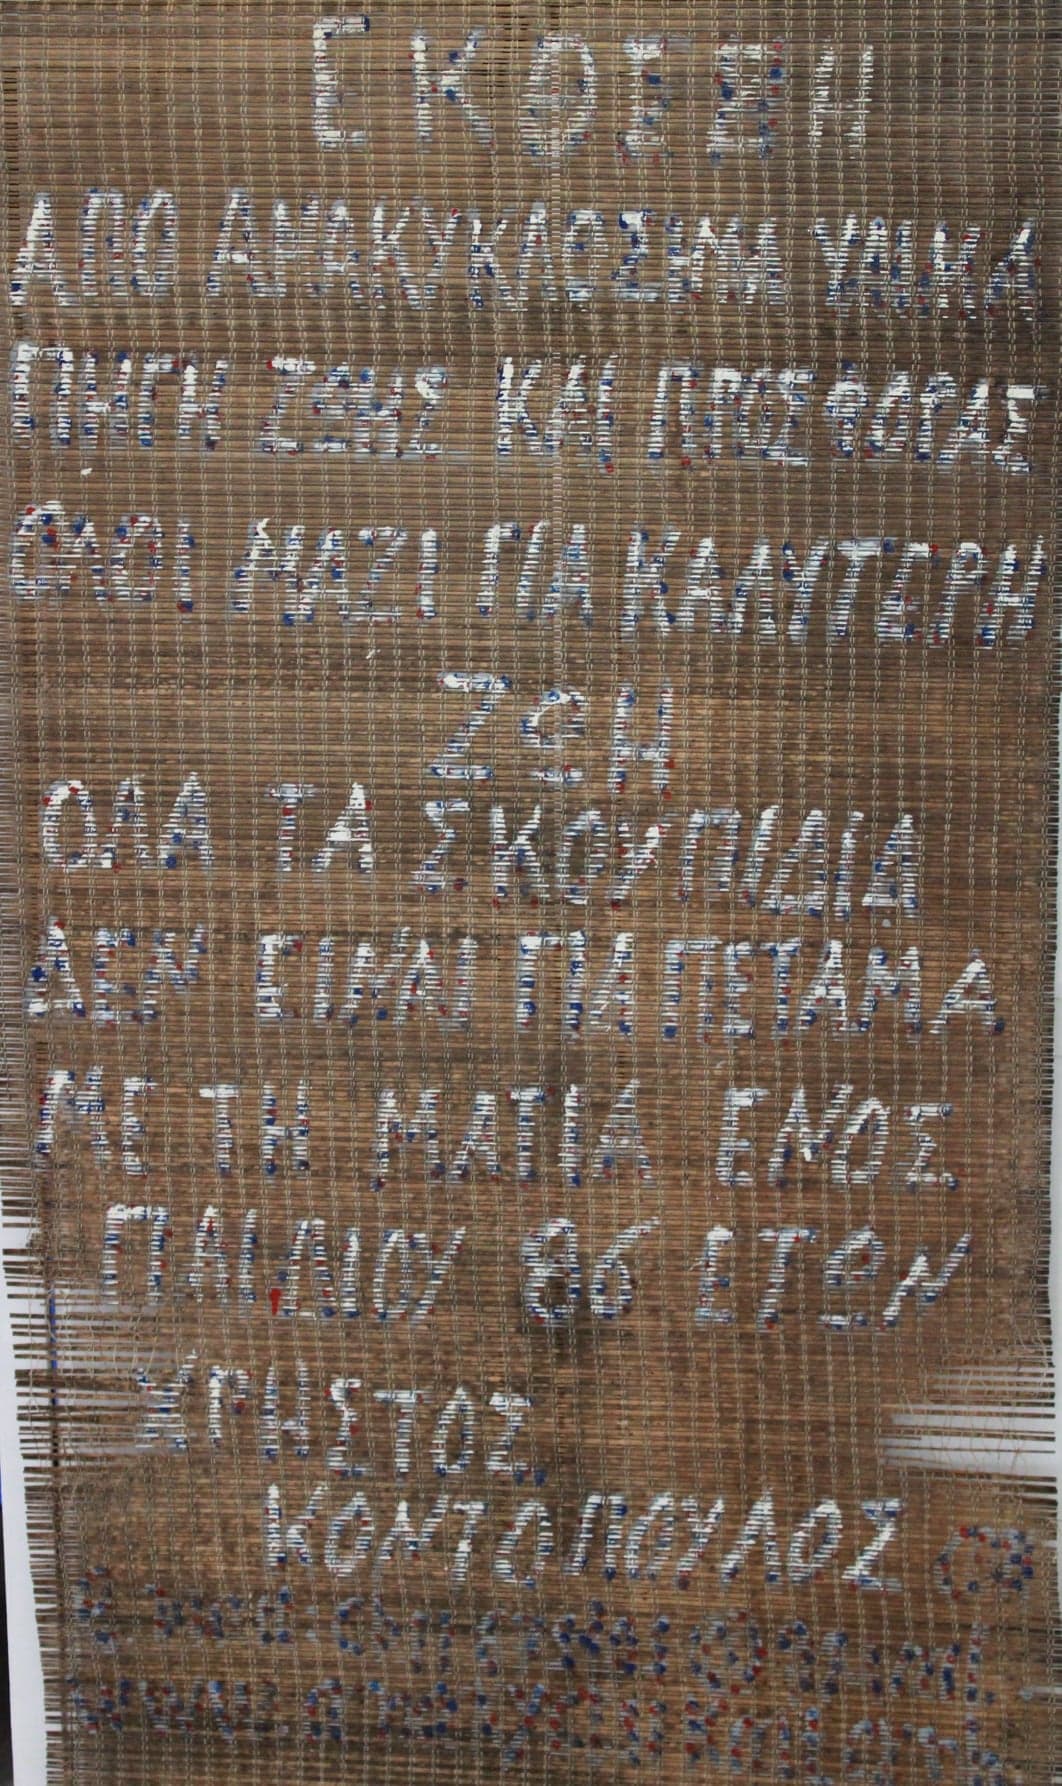 ΕΚΘΕΣΗ
ΑΠΟ ΑΝΑΚΥΚΛΟΣΙΜΑ ΥΛΙΚΑ
ΠΗΓΗ ΖΩΗΣ ΚΑΙ ΠΡΟΣΦΟΡΑΣ
ΟΛΟΙ ΜΑΖΙ ΓΙΑ ΚΑΛΥΤΕΡΗ
ΖΩΗ
ΟΛΑ ΤΑ ΣΚΟΥΠΙΔΙΑ
ΔΕΝ ΕΙΝΑΙ ΓΙΑ ΠΕΤΑΜΑ
ΜΕ ΤΗ ΜΑΤΙΑ ΕΝΟΣ
ΠΑΙΔΙΟΥ 86 ΕΤΩΝ
ΧΡΗΣΤΟΣ
ΚΟΝΤΟΠΟΥΛΟΣ